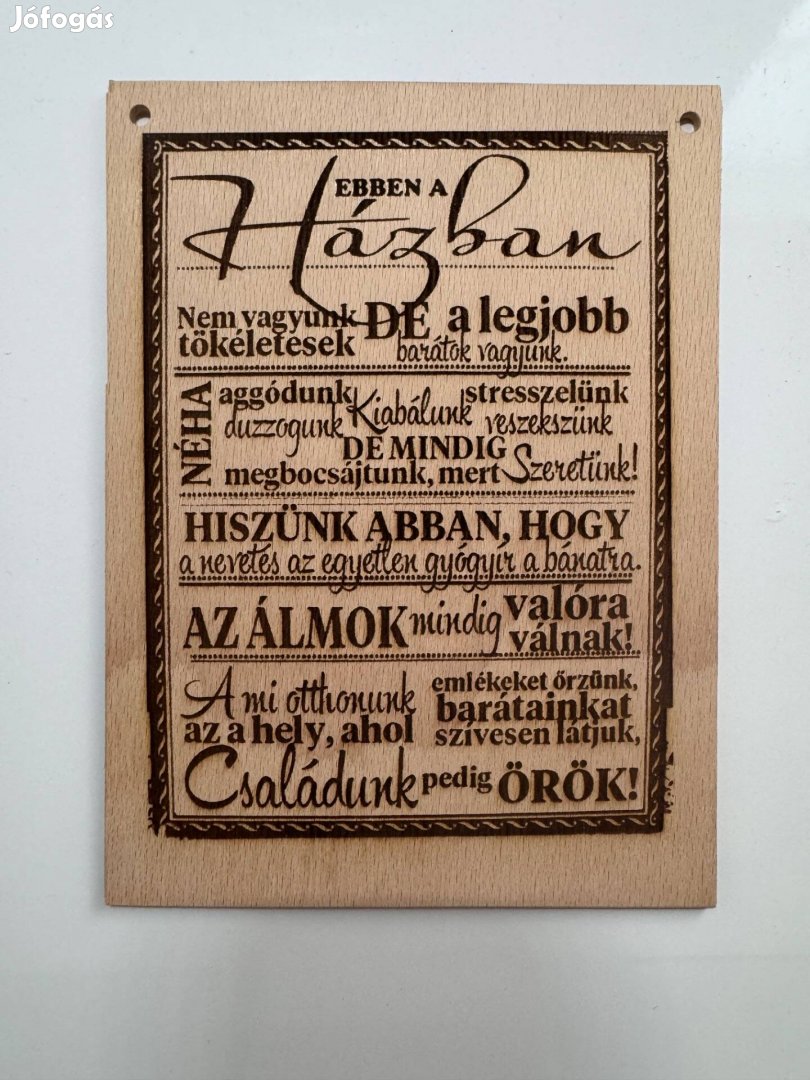 Jófogás
EBBEN A
Házban
Nem vagyunk tökéletesek DE a legjobb barátok vagyunk.
NÉHA
aggódunk Kiabálunk stresszelünk
duzzogunk veszekszünk
DE MINDIG
megbocsájtunk, mert Szeretünk!
HISZÜNK ABBAN, HOGY
a nevetés az egyetlen gyógyír a bánatra.
AZ ÁLMOK mindig valóra válnak!
A mi otthonunk
az a hely, ahol
emlékeket őrzünk,
barátainkat
szívesen látjuk,
Családunk pedig ÖRÖK!